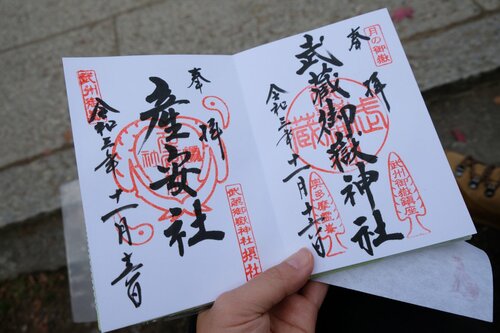 月の御嶽
奉拝
武蔵御嶽神社
令和三年十一月十三日
武州御嶽鎮座
奉拝
産安社
令和三年十一月十三日
武蔵御嶽神社摂社